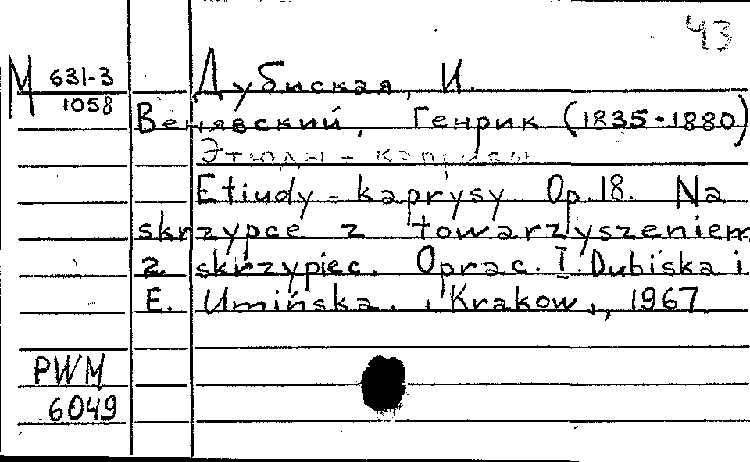 43
М 631-3
1058
Дубиская, И.
Венявский, Генрик (1835-1880)
Этюды - капризы
Etiudy - kaprysy Op. 18. Na
skrzypce z towarzyszeniem
2. skrzypiec. Oprac. I. Dubiska i
E. Umińska. Krakow., 1967
PWM
6049